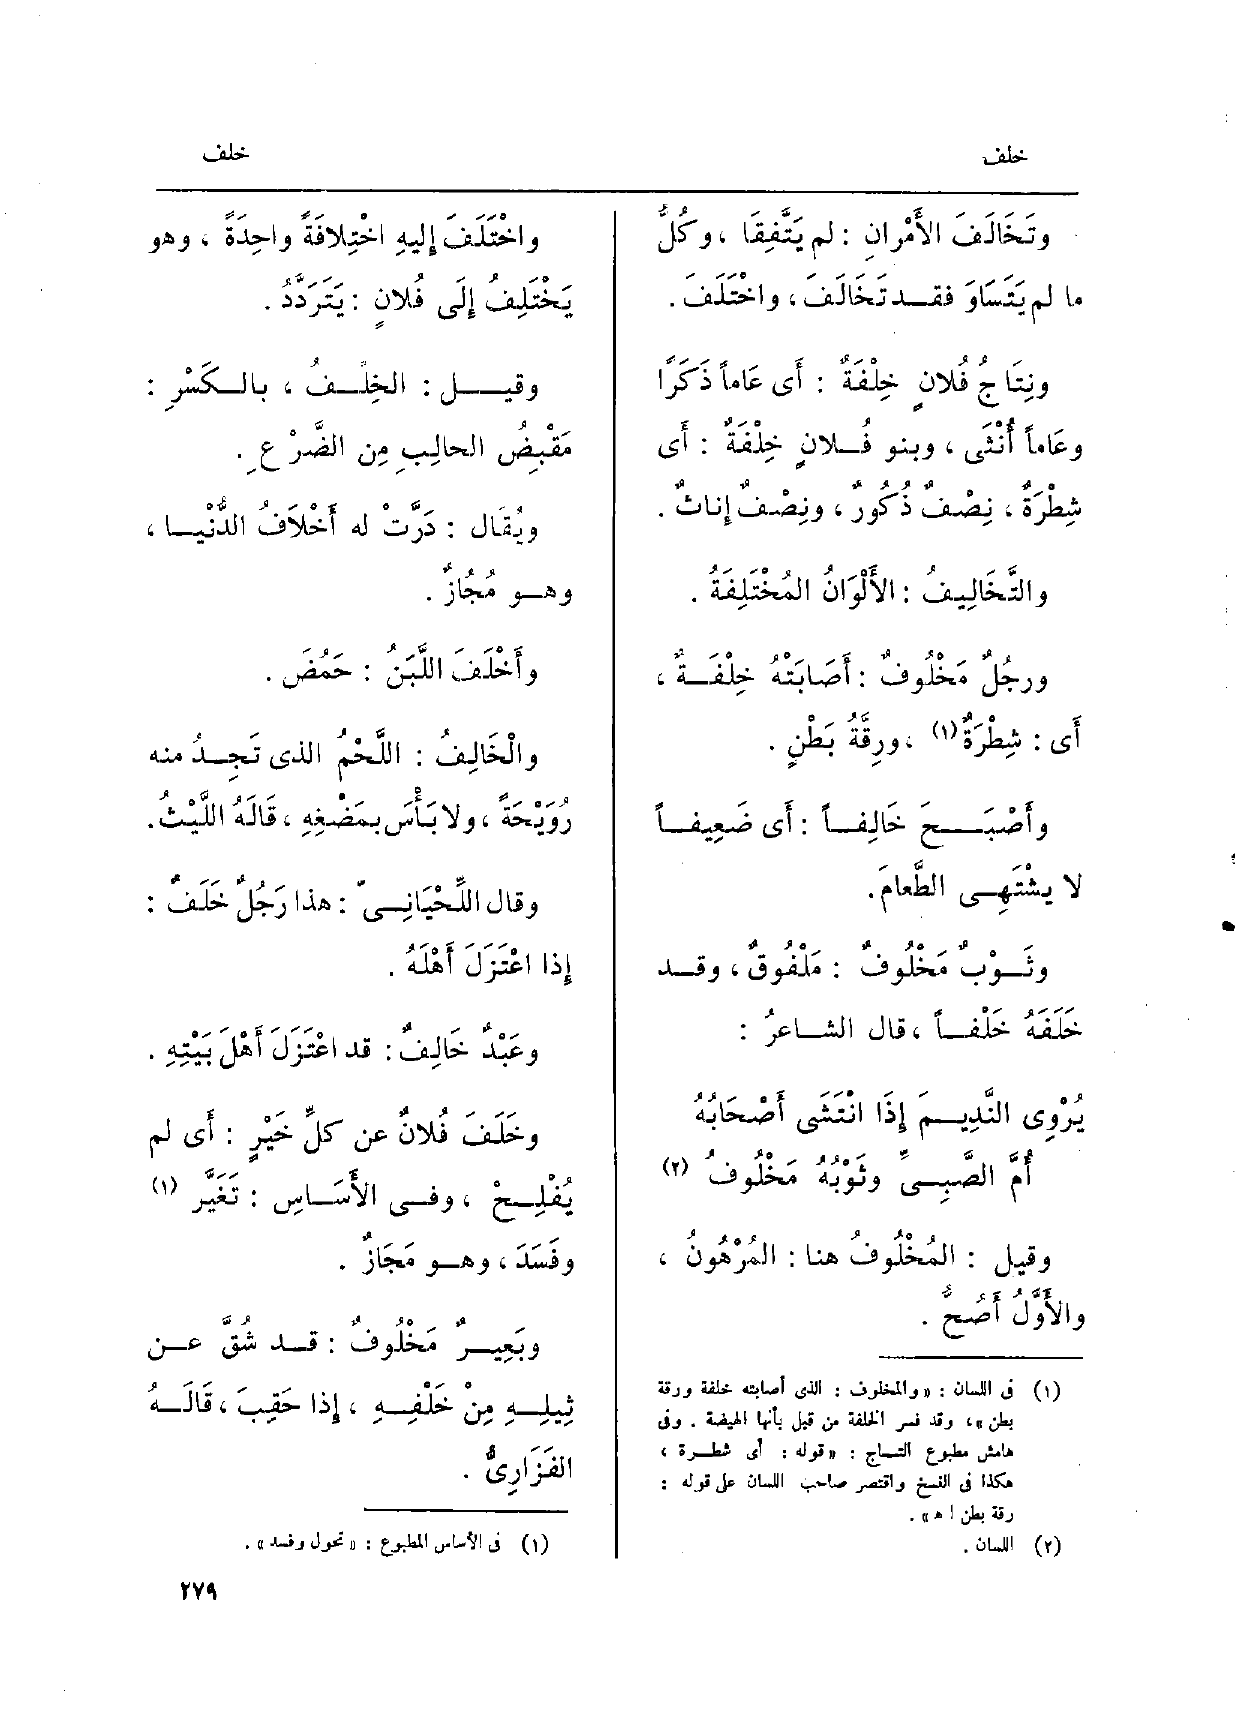 خلف
خلف
وتَخَالَفَ الأَمْرانِ : لم يَتَّفِقَا ، وكُلُّ
ما لم يَتَسَاوَ فقـد تَخَالَفَ ، واخْتَلَفَ .
ونِتَاجُ فُلانٍ خِلْفَةٌ : أَى عَاماً ذَكَرًا
وعَاماً أُنْثَى ، وبنو فُـلانٍ خِلْفَةٌ : أَى
شِطْرَةٌ ، نِصْفٌ ذُكُورٌ ، ونِصْفٌ إِناثٌ .
والتَّخَالِيفُ : الأَلْوَانُ المُخْتَلِفَةُ .
ورجُلٌ مَخْلُوفٌ : أَصَابَتْهُ خِلْفَـةٌ ،
أَى : شِطْرَةٌ (١) ، ورِقَّةُ بَطْنٍ .
وأَصْبَـــحَ خَالِفـاً : أَى ضَعِيفـاً
لا يشْتَهِـى الطَّعامَ .
وثَـوْبٌ مَخْلُوفٌ : مَلْفُوقٌ ، وقـد
خَلَفَهُ خَلْفـاً ، قال الشـاعرُ :
يُرْوِى النَّدِيـمَ إِذَا انْتَشَى أَصْحَابُهُ
أُمَّ الصَّبِـىِّ وثَوْبُهُ مَخْلُوفُ (٢)
وقيل : المُخْلُوفُ هنا : المُرْهُونُ ،
والأَوَّلُ أَصَحُّ .
(١) فى اللسان : « والمخلوف : الذى أصابته خلفة ورقة
بطن » ، وقد فسر الخلفة من قبل بأنها الهيضة . وفى
هامش مطبوع التـاج : « قوله : أى شطـرة ،
هكذا فى النسخ واقتصر صاحب اللسان على قوله :
رقة بطن ا ه » .
(٢) اللسان .
واخْتَلَفَ إِليهِ اخْتِلافَةً واحِدَةً ، وهو
يَخْتَلِفُ إِلَى فُلانٍ : يَتَرَدَّدُ .
وقيـــل : الخِلْـفُ ، بالـكَسْرِ :
مَقْبِضُ الحالِبِ مِن الضَّرْعِ .
ويُقَال : دَرَّتْ له أَخْلَافُ الدُّنْيـا ،
وهـو مُجُازٌ .
وأَخْلَفَ اللَّبَنُ : حَمُضَ .
والْخَالِفُ : اللَّحْمُ الذى تَجِـدُ منه
رُوَيْحَةً ، ولا بَأْسَ بمَضْغِهِ ، قَالَهُ اللَّيْثُ .
وقال اللِّحْيَانِـىّ : هذا رَجُلٌ خَلَفٌ :
إِذا اعْتَزَلَ أَهْلَهُ .
وعَبْدٌ خَالِفٌ : قد اعْتَزَلَ أَهْلَ بَيْتِهِ .
وخَلَفَ فُلانٌ عن كلِّ خَيْرٍ : أَى لم
يُفْلِـحْ ، وفـى الأَسَـاسِ : تَغَيَّر (١)
وفَسَدَ ، وهـو مَجَازٌ .
وبَعِيـرٌ مَخْلُوفٌ : قـد شُقَّ عـن
ثِيلِـهِ مِنْ خَلْفِـهِ ، إِذا حَقِبَ ، قَالَـهُ
الفَزَارِىُّ .
(١) فى الأساس المطبوع : « تحول وفسد » .
٢٧٩